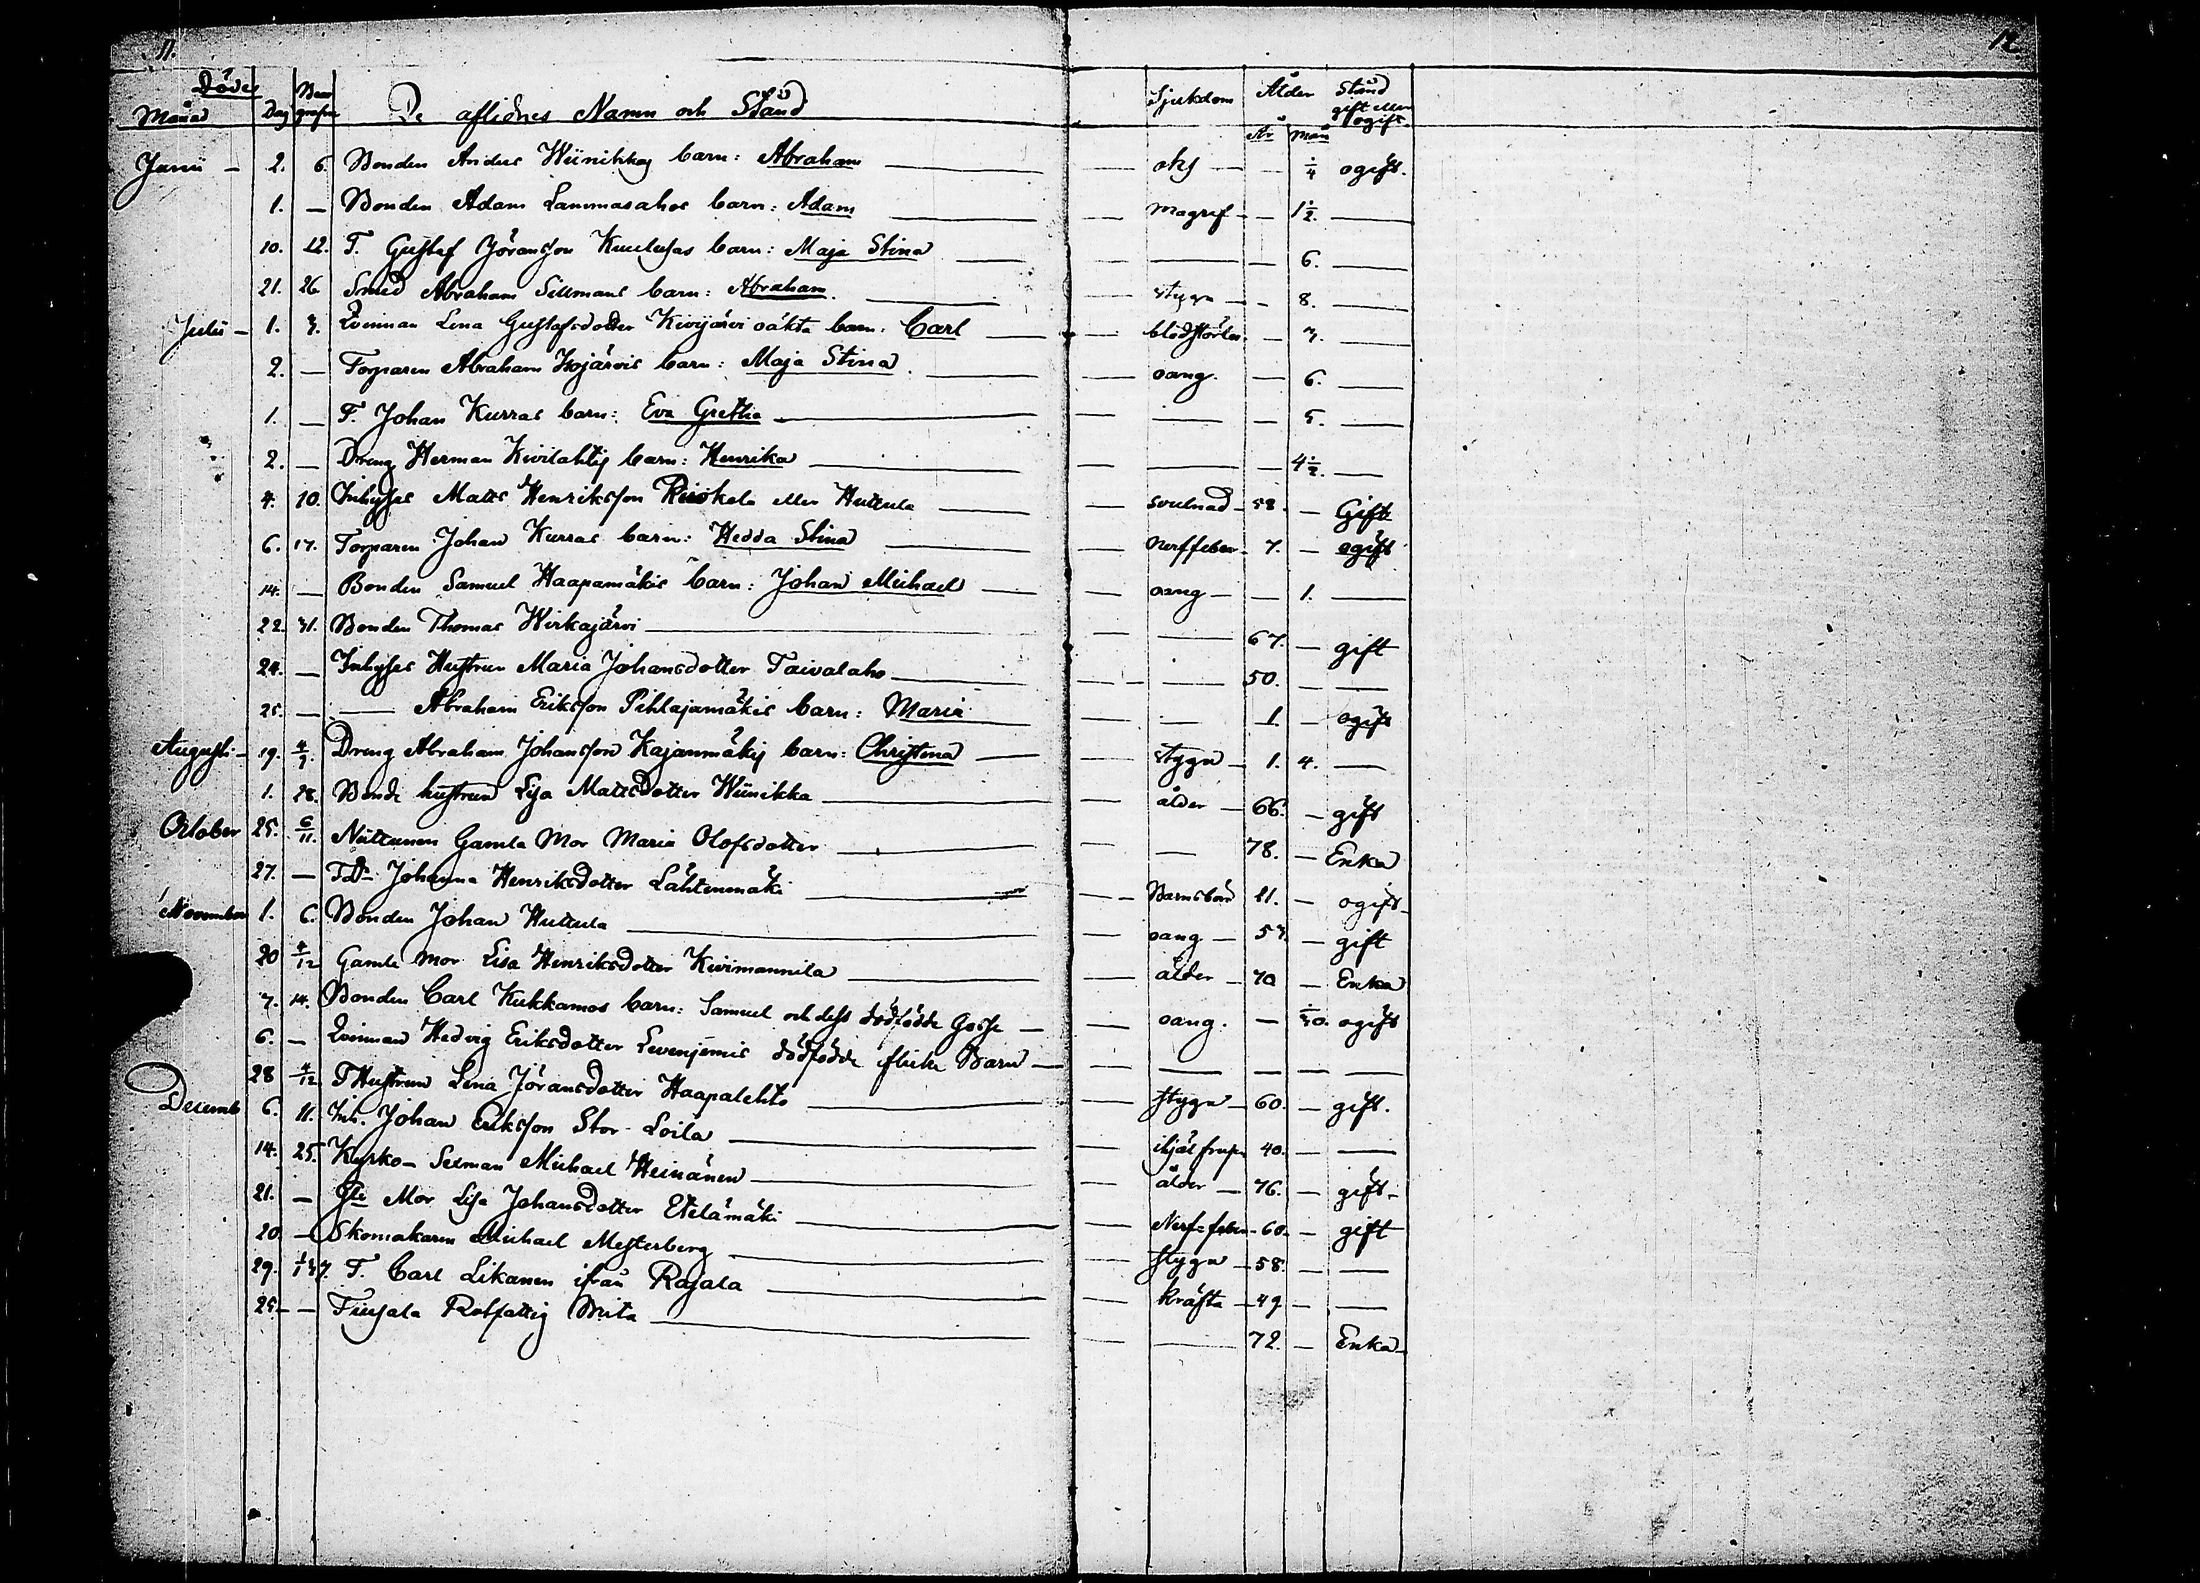 11. 12
Döde Begrafne De aflidnes Namn och Stånd Sjukdom Ålder Stånd gift eller ogift
Månad Dag År Mån
Junii – 2. 6. Bonden Anders Wiinikkas barn: Abraham — oks — 1/4 ogift.
1. — Bonden Adam Lammasahos barn: Adam — magref — 1 1/2. —
10. 12. T. Gustaf Jöransson barn: Maja Stina — 6. —
21. 26. Smed Abraham Sillmans barn: Abraham. — stygn — 8. —
Julii – 1. 3. Qvinnan Lena Gustafsdotter Kivijärvi oäkta barn: Carl — blodstörtn. — 3. —
2. — Torparen Abraham Isojärvis barn: Maja Stina. — oang. — 6. —
1. — T. Johan Kurras barn: Eva Gretha — 5. —
2. — Dreng Herman Kivilahtis barn: Henrika — 4 1/2. —
4. 10. Inhyses Matts Henriksson eller Huttula — svulnad — 58 — Gift
6. 17. Torparen Johan Kurras barn: Hedda Stina — Nerffeber — 7. — ogift
14. — Bonden Samuel Haapamäkis barn: Johan Michael — oang — 1. —
22. 31. Bonden Thomas Wirkajärvi — 67. — gift
24. — Inhyses Hustrun Maria Johansdotter Taivalaho — 50. —
25. — — Abraham Eriksson Pihlajamäkis barn: Maria — 1. — ogift
Augusti – 19. 4/9. Dreng Abraham Johansson Kajanmäkis barn: Christina — stygn — 1. 4. —
1. 28. Bonde hustrun Lisa Mattsdotter Wiinikka — ålder — 66. — gift
October 25. 6/11. Niittunen Gamla Mor Maria Olofsdotter — 78. — Enka
27. — TDr Johanna Henriksdotter Lähtenmäki — Barnsbörd 21. — ogift
November 1. 6. Bonden Johan Huttula — oang — 53. — gift
20 4/12 Gamla Mor Lisa Henriksdotter Kivimannila — ålder — 70 — Enka
7. 14. Bonden Carl Kukkamos barn: Samuel och dess dödfödde Gosse — oang. — 1/30. ogift
6. — Qvinnan Hedvig Eriksdotter dödfödde flicke Barn —
28 4/12 T Hustrun Lena Jöransdotter Haapalehto — stygn — 60. — gift.
Decemb 6. 11. Inh. Johan Eriksson Stor Loila — ihjäl frusn 40. —
14. 25. Kyrko – Michael Heinänen — ålder — 76. — gift
21. — Gla Mor Lisa Johansdotter Etelämäki — Nerf-feber — 60. — gift
20. — Skomakaren Michael Mesterberg — stygn — 58. —
29. T. Carl Likanen ifrån Rajala — kräfta — 49 —
25. — — Tuisala Rotfattig Brita — 72. — Enka